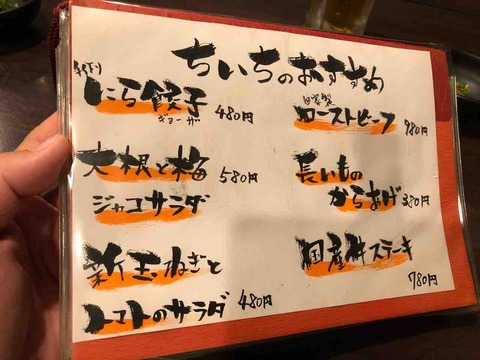 ちいちのおすすめ
手作り
にら餃子 480円
ギョーザ
大根と梅 580円
ジャコサラダ
新玉ねぎと
トマトのサラダ 480円
自家製
ローストビーフ 980円
長いもの
からあげ 380円
国産牛ステーキ
780円